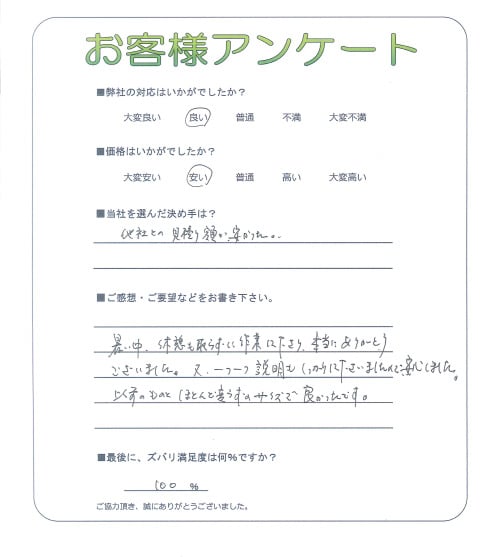 お客様アンケート
■弊社の対応はいかがでしたか?
大変良い 良い 普通 不満 大変不満
■価格はいかがでしたか?
大変安い 安い 普通 高い 大変高い
■当社を選んだ決め手は?
他社との見積り額が安かった。
■ご感想・ご要望などをお書き下さい。
暑い中、休憩も取らずに作業に下さり、本当にありがとう
ございました。又、一つ一つ説明もしっかりに下さいましたので安心しました。
以前のものとほとんど違うずのサイズで良かったです。
■最後に、ズバリ満足度は何%ですか?
100 %
ご協力頂き、誠にありがとうございました。